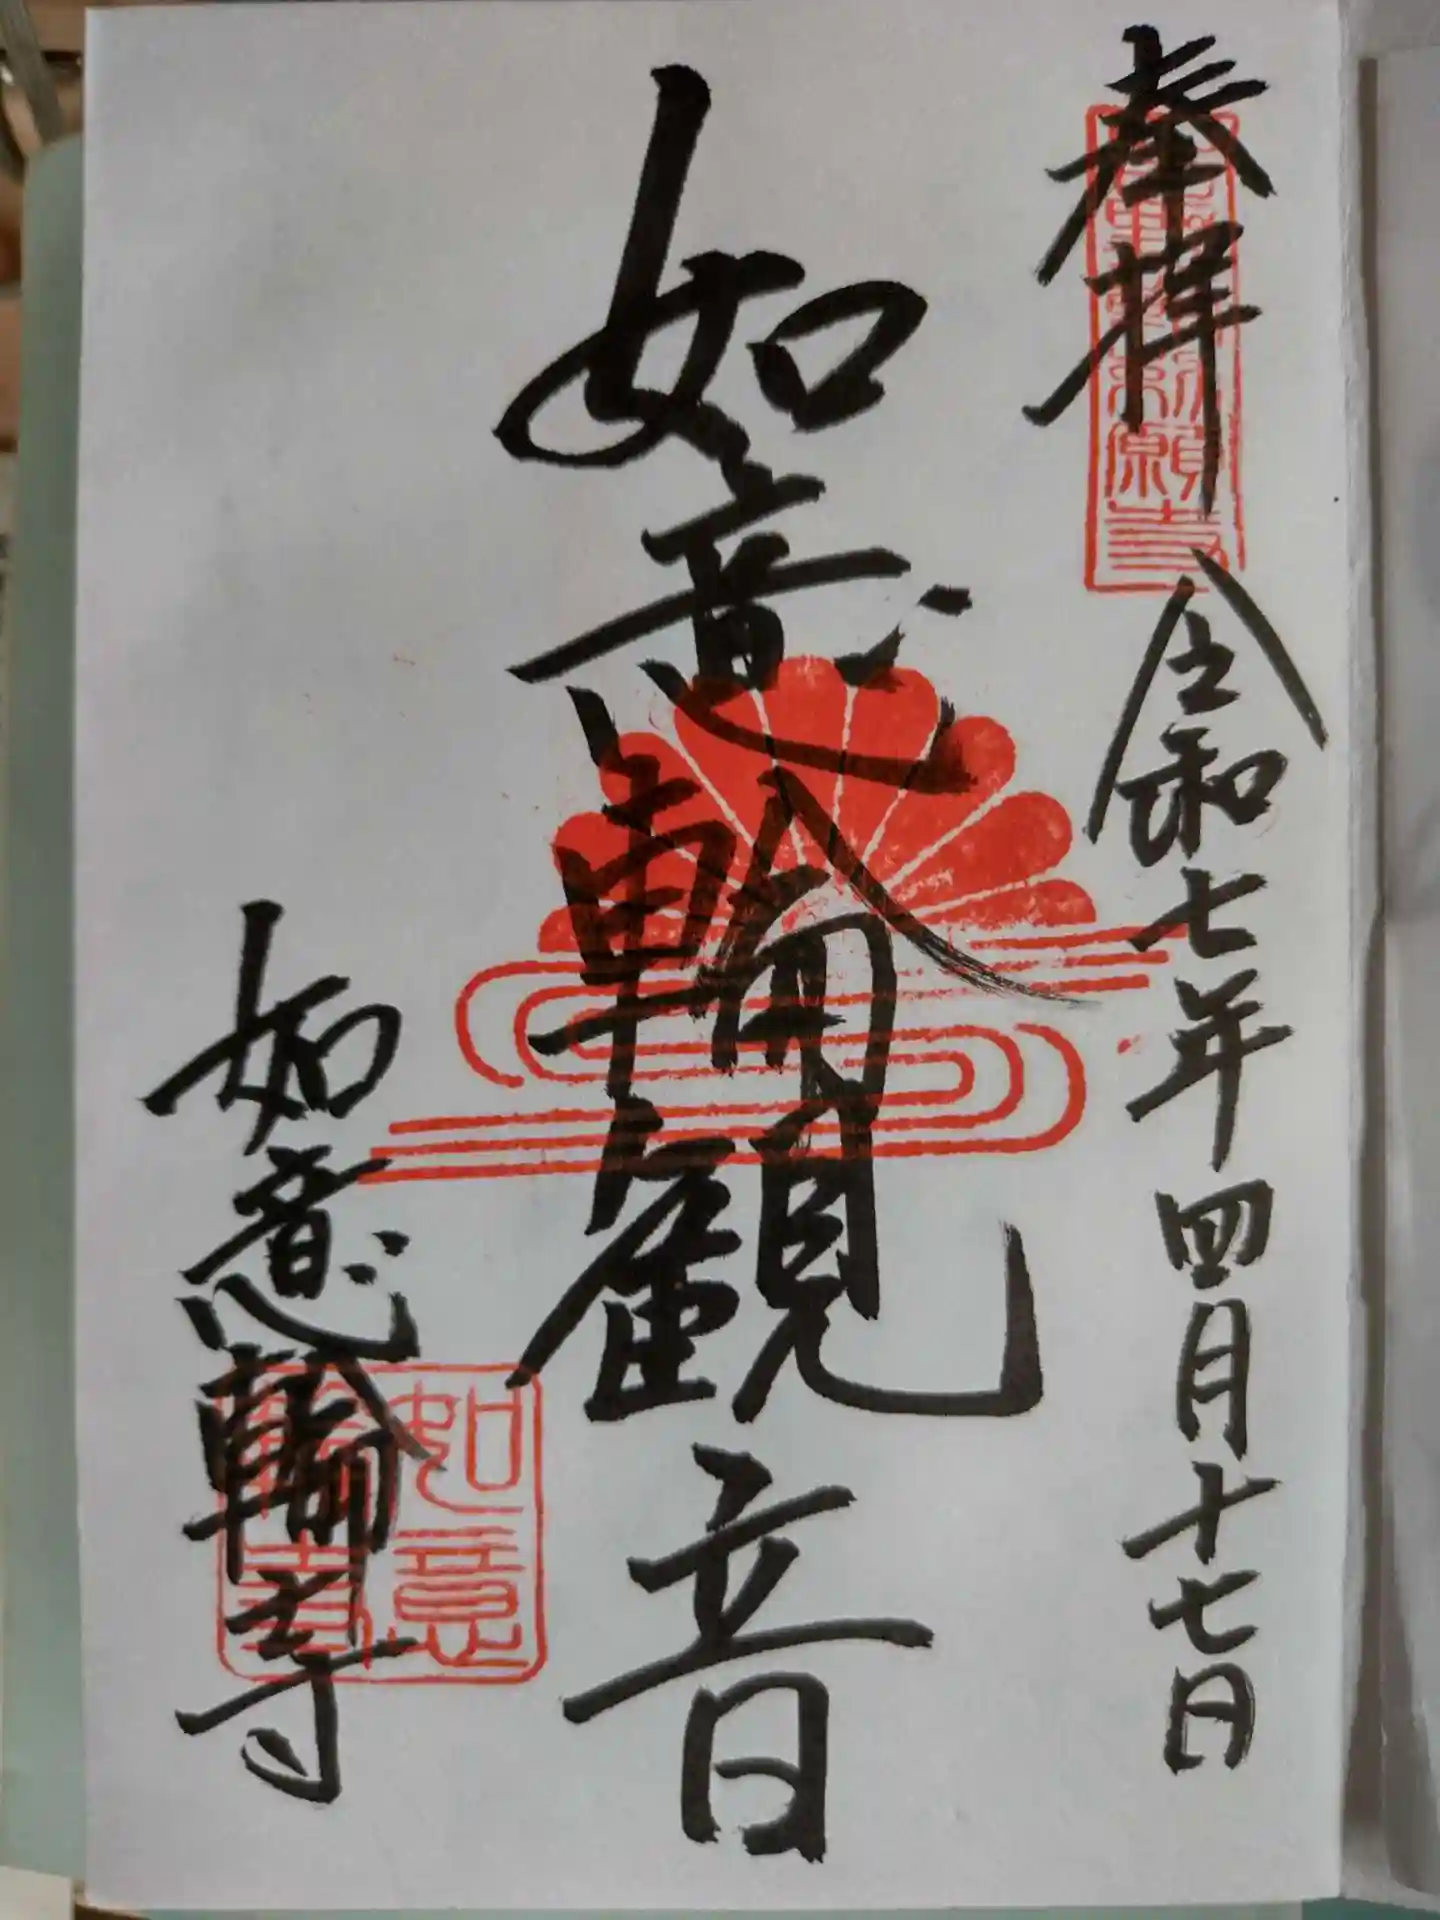 奉拝
令和七年四月十七日
如意輪観音
如意輪寺
如意
輪寺